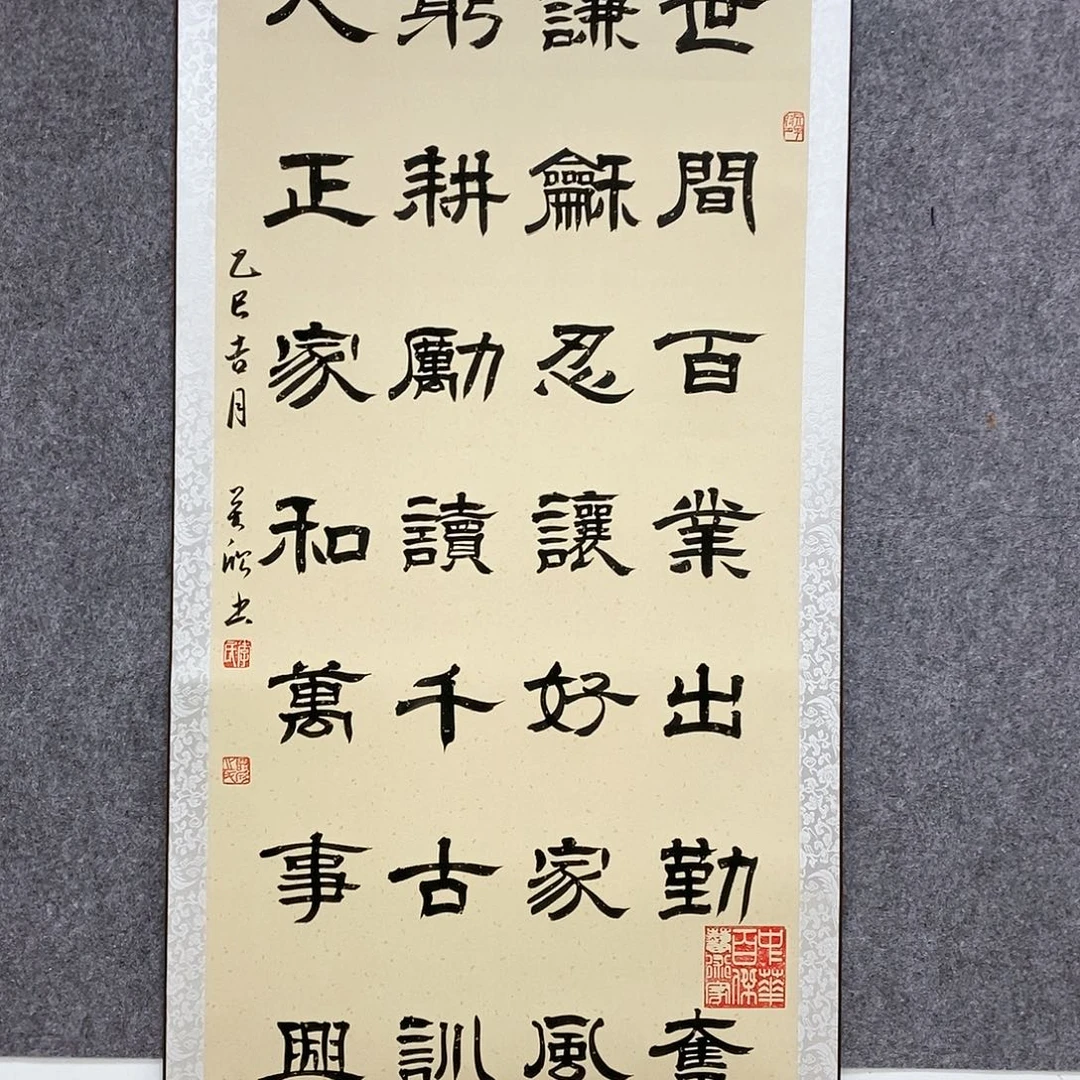 世間百業出勤奮
謙龢忍讓好家風
躬耕勵讀千古訓
人正家和萬事興
乙巳吉月
书
中華百傑藝術家